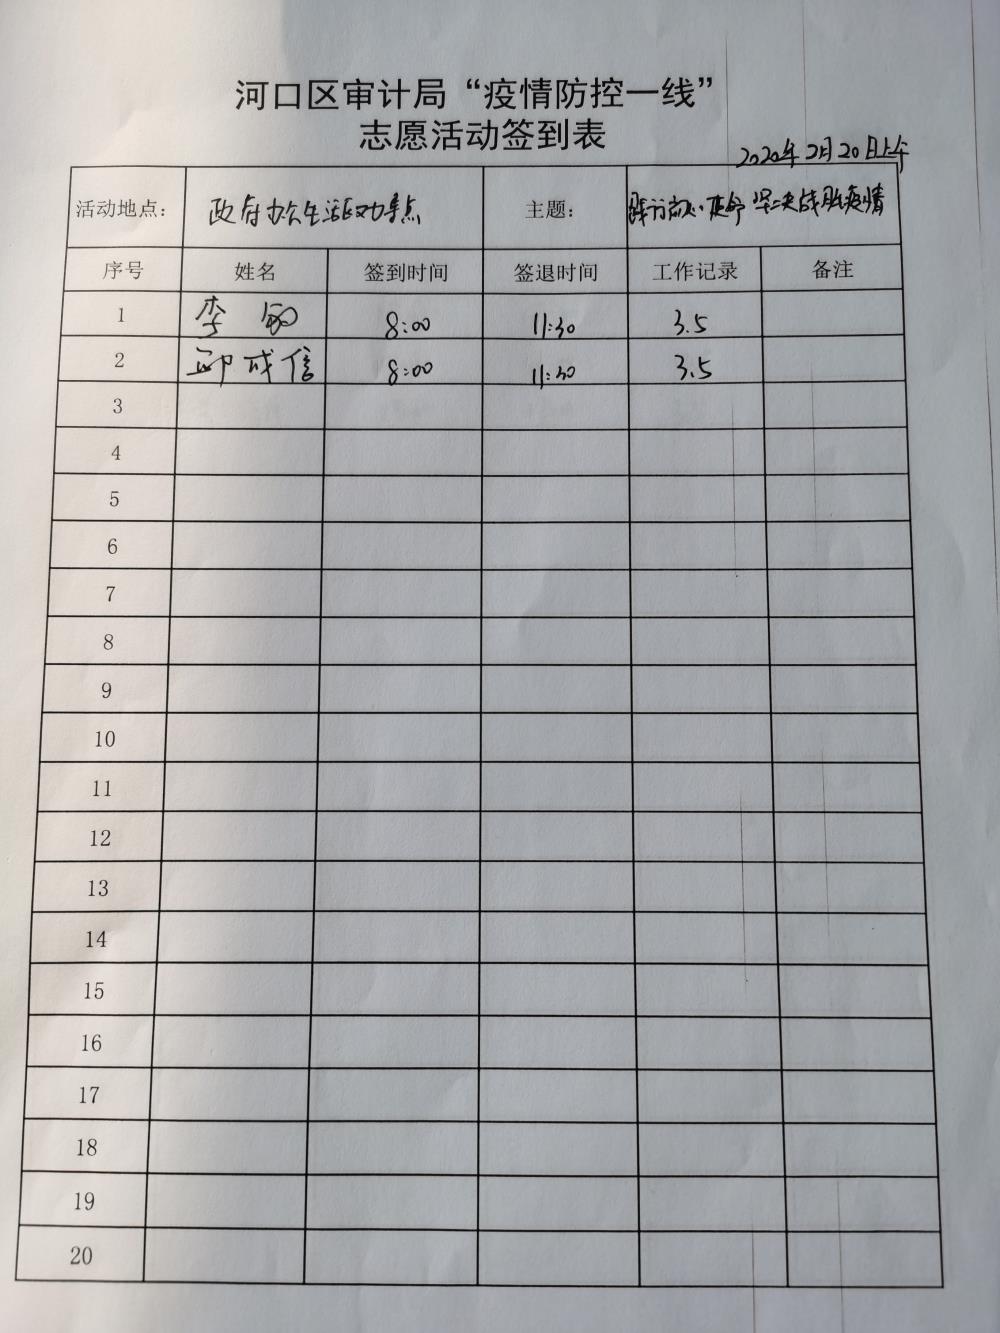 河口区审计局“疫情防控一线”
志愿活动签到表
2020年2月20日上午
活动地点： 政府办公生活区功 点 主题： 坚决战胜疫情
序号 姓名 签到时间 签退时间 工作记录 备注
1 李敏 8:00 11:30 3.5
2 邱成信 8:00 11:30 3.5
3
4
5
6
7
8
9
10
11
12
13
14
15
16
17
18
19
20